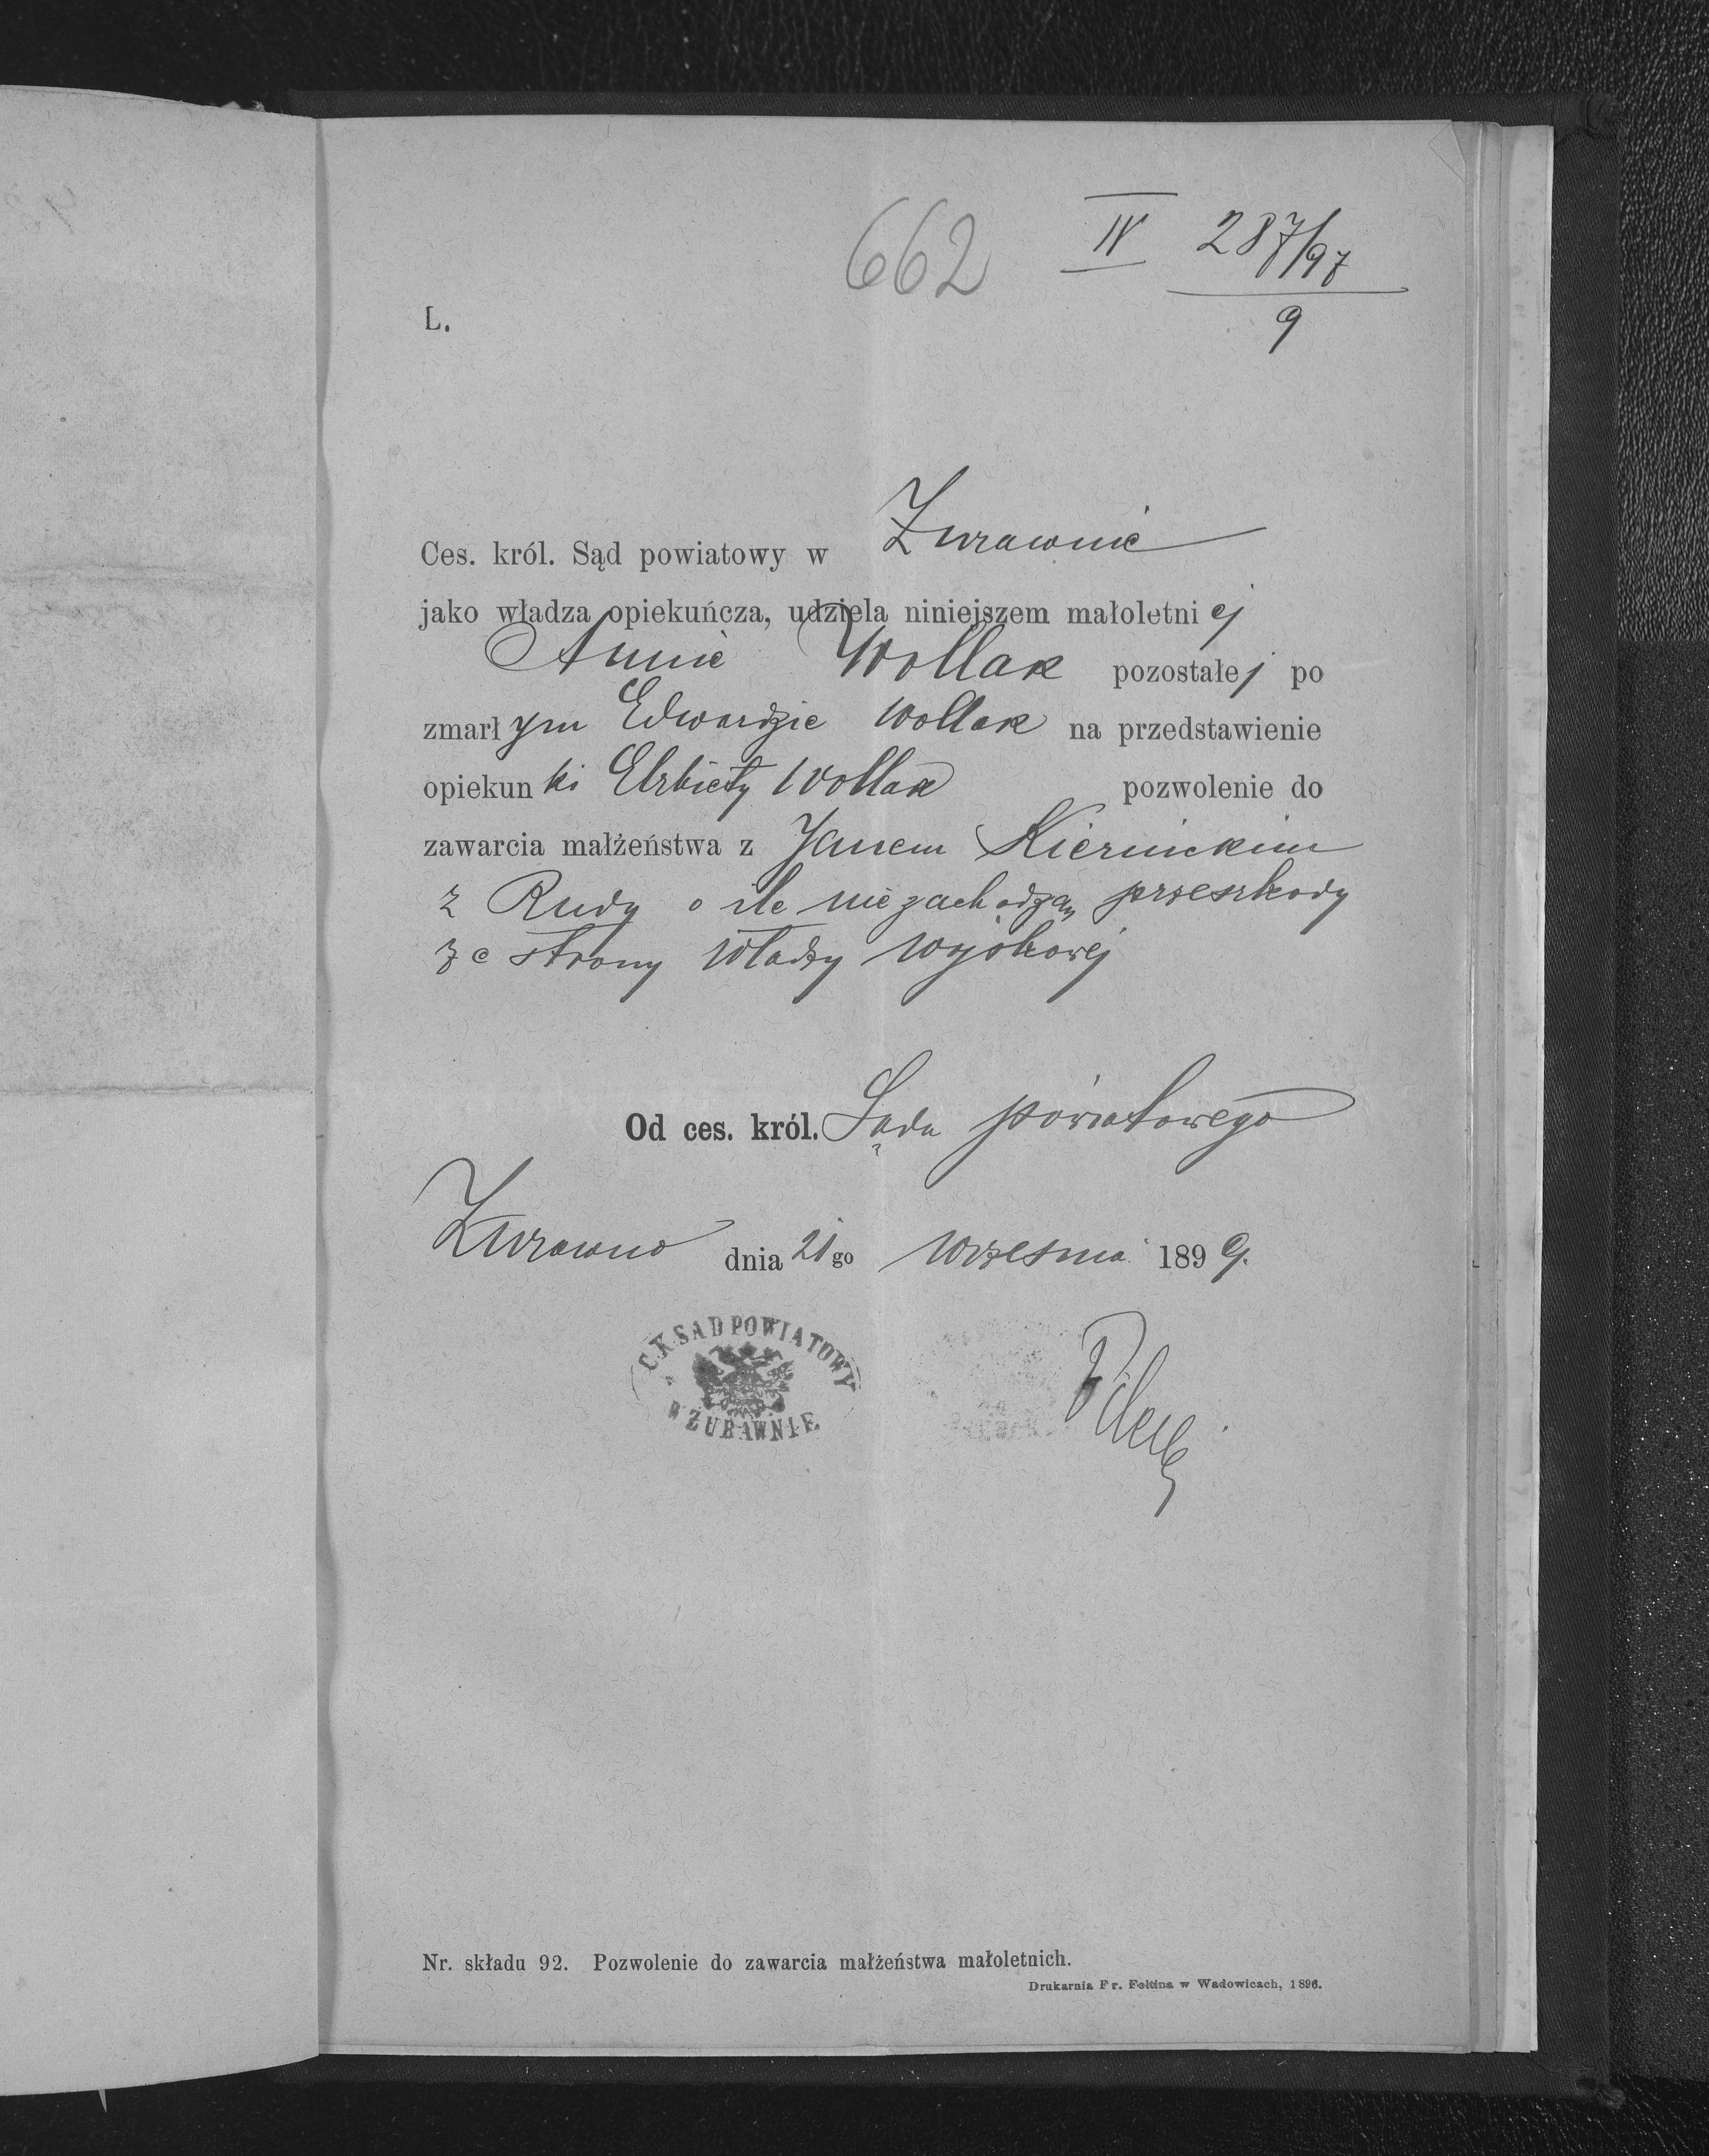 662 IV 287/97
9
L.
Ces. król. Sąd powiatowy w Żurawnie
jako władza opiekuńcza, udziela niniejszem małoletniej
Annie Wollak pozostałej po
zmarłym Edwardzie Wollak na przedstawienie
opiekunki Elżbiety Wollak pozwolenie do
zawarcia małżeństwa z Janem Kiernickim
z Rudy o ile nie zachodzą przeszkody
ze strony Władzy wojskowej
Od ces. król. Sądu powiatowego
Żurawno dnia 21go września 1899.
C.K. SĄD POWIATOWY
W ŻURAWNIE
Nr. składu 92. Pozwolenie do zawarcia małżeństwa małoletnich.
Drukarnia Fr. Foltina w Wadowicach, 1896.